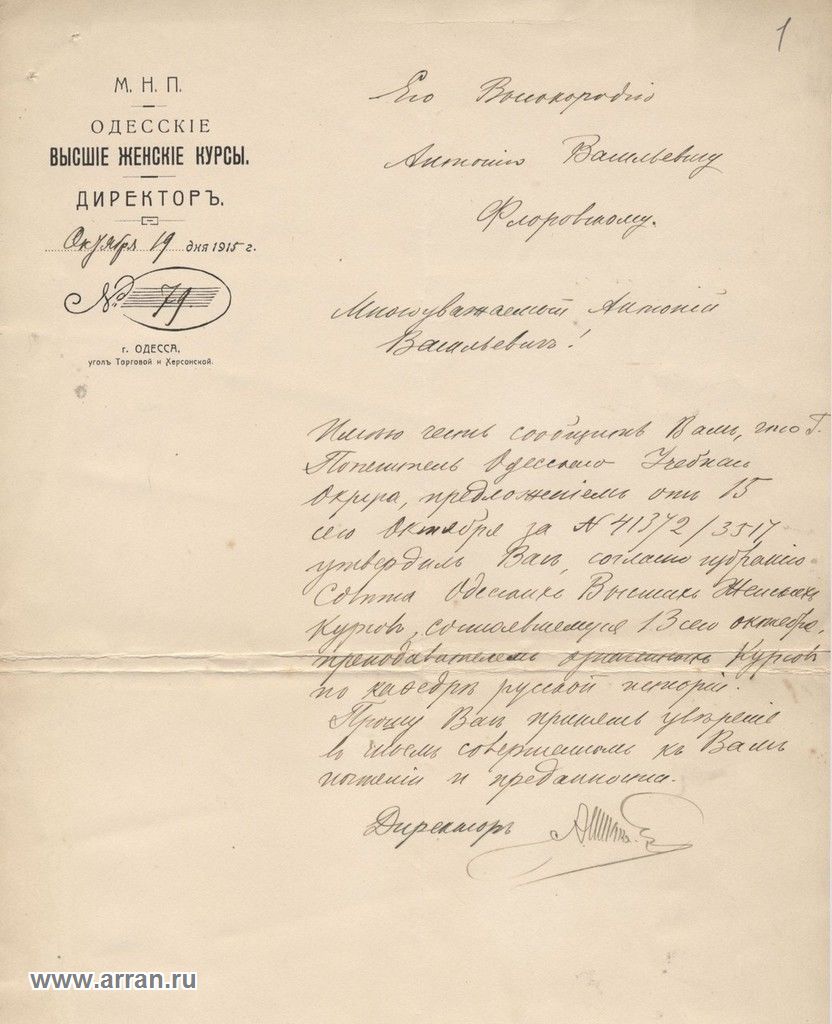 1
М. Н. П.
ОДЕССКІЕ
ВЫСШІЕ ЖЕНСКІЕ КУРСЫ.
ДИРЕКТОРЪ.
Октября 19 дня 1915 г.
№ 79.
г. ОДЕССА,
уголъ Торговой и Херсонской.
Его Высокородію
Антонію Васильевичу
Флоровскому.
Многоуважаемый Антоній
Васильевичъ!
Имѣю честь сообщить Вамъ, что Г.
Попечитель Одесскаго Учебнаго
Округа, предложеніемъ отъ 15
сего Октября за № 41372/3517
утвердилъ Васъ, согласно избранію
Совѣта Одесскихъ Высшихъ Женскихъ
Курсовъ, состоявшемуся 13 сего октября,
преподавателемъ означенныхъ Курсовъ
по кафедрѣ русской исторіи.
Прошу Васъ принять увѣреніе
въ моемъ совершенномъ къ Вамъ
почтеніи и преданности.
Директоръ
www.arran.ru